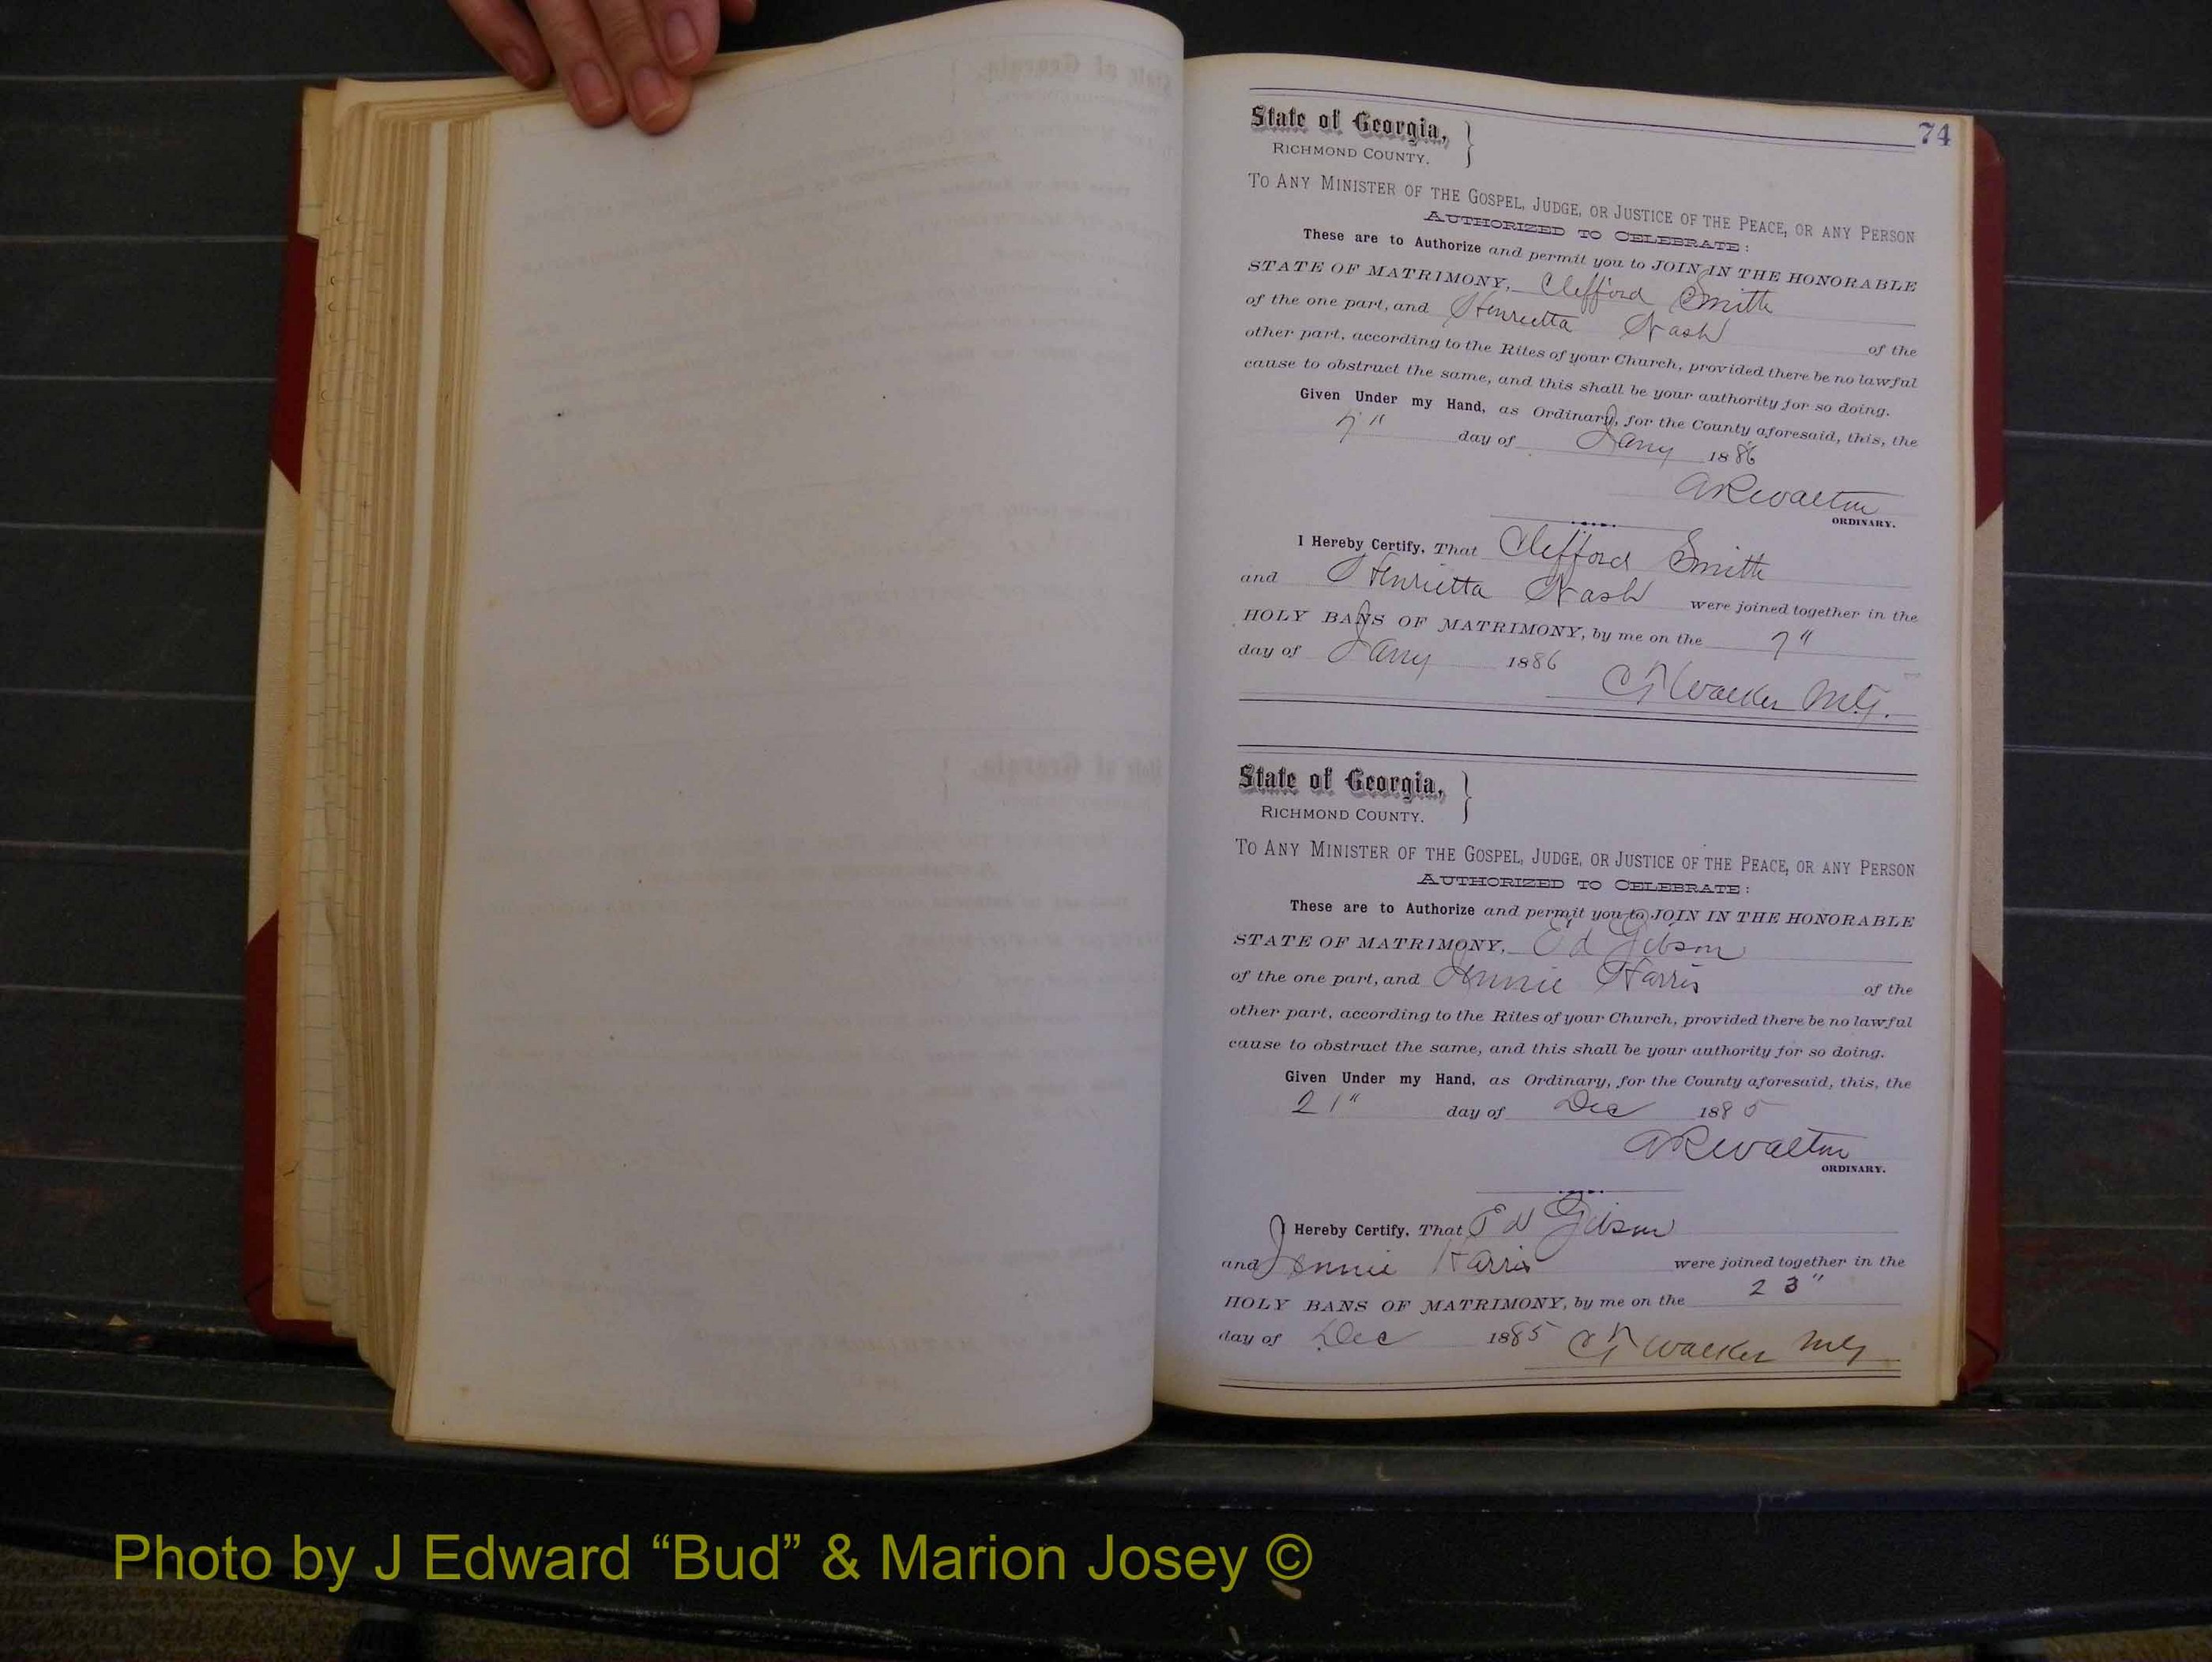 74
State of Georgia,
RICHMOND COUNTY.
TO ANY MINISTER OF THE GOSPEL, JUDGE, OR JUSTICE OF THE PEACE, OR ANY PERSON
AUTHORIZED TO CELEBRATE:
These are to Authorize and permit you to JOIN IN THE HONORABLE
STATE OF MATRIMONY, Clifford Smith
of the one part, and Henrietta Nash of the
other part, according to the Rites of your Church, provided there be no lawful
cause to obstruct the same, and this shall be your authority for so doing.
Given Under my Hand, as Ordinary, for the County aforesaid, this, the
7" day of Jany 1886
A R Walton
ORDINARY.
I Hereby Certify, That Clifford Smith
and Henrietta Nash were joined together in the
HOLY BANS OF MATRIMONY, by me on the 7"
day of Jany 1886
C T Walker M.G.
State of Georgia,
RICHMOND COUNTY.
TO ANY MINISTER OF THE GOSPEL, JUDGE, OR JUSTICE OF THE PEACE, OR ANY PERSON
AUTHORIZED TO CELEBRATE:
These are to Authorize and permit you to JOIN IN THE HONORABLE
STATE OF MATRIMONY, Ed Gibson
of the one part, and Jennie Harris of the
other part, according to the Rites of your Church, provided there be no lawful
cause to obstruct the same, and this shall be your authority for so doing.
Given Under my Hand, as Ordinary, for the County aforesaid, this, the
21" day of Dec 1885
A R Walton
ORDINARY.
I Hereby Certify, That Ed Gibson
and Jennie Harris were joined together in the
HOLY BANS OF MATRIMONY, by me on the 23"
day of Dec 1885 C T Walker MG
Photo by J Edward “Bud” & Marion Josey ©